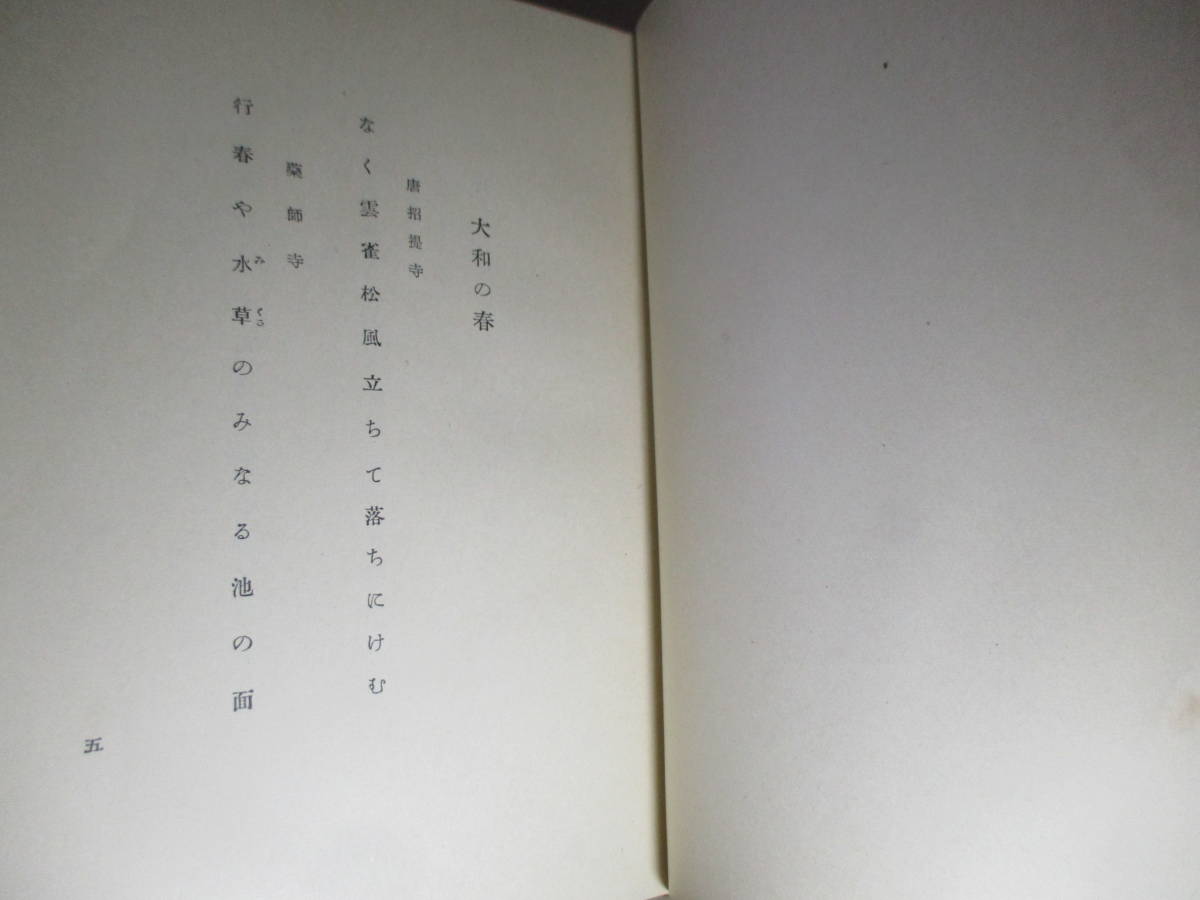 大和の春
唐招提寺
なく雲雀松風立ちて落ちにけむ
藥師寺
行春や水草のみなる池の面
みくさ
五